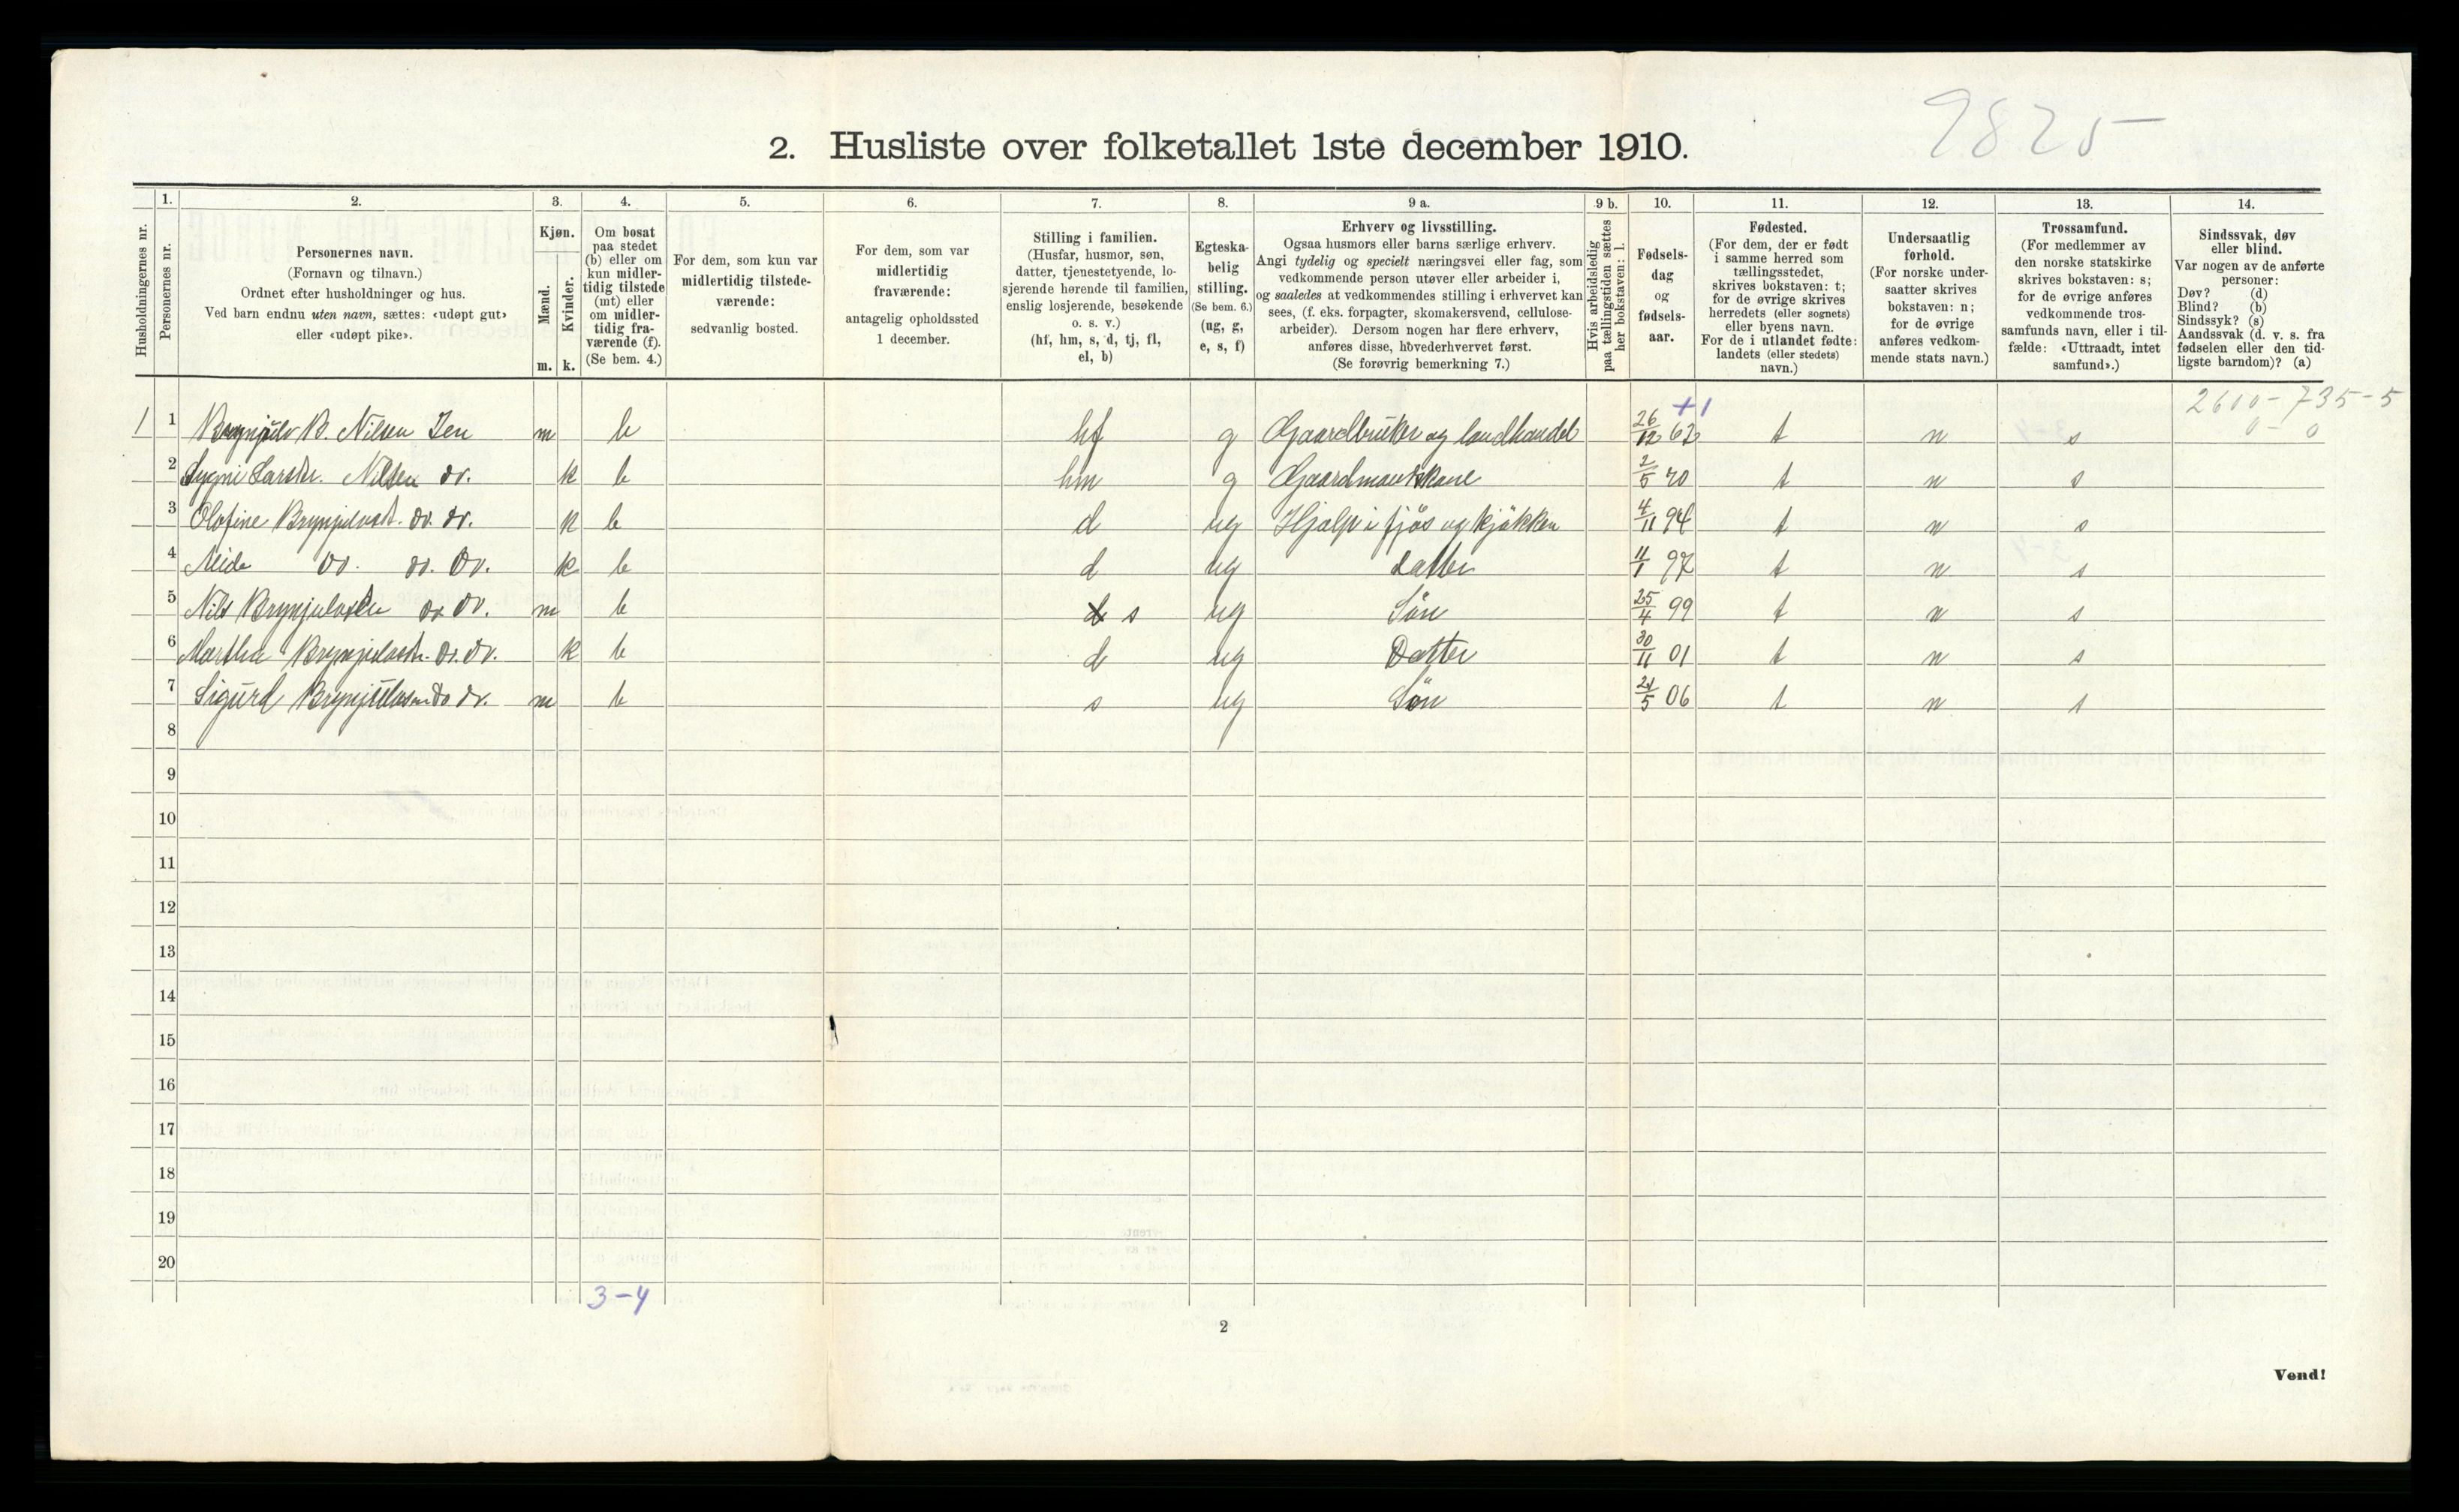 9825
2. Husliste over folketallet 1ste december 1910.
Husholdningernes nr.
1.
Personernes nr.
2.
Personernes navn.
(Fornavn og tilnavn.)
Ordnet efter husholdninger og hus.
Ved barn endnu uten navn, sættes: «udøpt gut»
eller «udøpt pike».
3.
Kjøn.
Mænd.
Kvinder.
m. k.
4.
Om bosat
paa stedet
(b) eller om
kun midler-
tidig tilstede
(mt) eller
om midler-
tidig fra-
værende (f).
(Se bem. 4.)
5.
For dem, som kun var
midlertidig tilstede-
værende:
sedvanlig bosted.
6.
For dem, som var
midlertidig
fraværende:
antagelig opholdssted
1 december.
7.
Stilling i familien.
(Husfar, husmor, søn,
datter, tjenestetyende, lo-
sjerende hørende til familien,
enslig losjerende, besøkende
o. s. v.)
(hf, hm, s, d, tj, fl,
el, b)
8.
Egteska-
belig
stilling.
(Se bem. 6.)
(ug, g,
e, s, f)
9 a.
Erhverv og livsstilling.
Ogsaa husmors eller barns særlige erhverv.
Angi tydelig og specielt næringsvei eller fag, som
vedkommende person utøver eller arbeider i,
og saaledes at vedkommendes stilling i erhvervet kan
sees, (f. eks. forpagter, skomakersvend, cellulose-
arbeider). Dersom nogen har flere erhverv,
anføres disse, hovederhvervet først.
(Se forøvrig bemerkning 7.)
9 b.
Hvis arbeidsledig
paa tællingstiden sættes
her bokstaven: l.
10.
Fødsels-
dag
og
fødsels-
aar.
11.
Fødested.
(For dem, der er født
i samme herred som
tællingsstedet,
skrives bokstaven: t;
for de øvrige skrives
herredets (eller sognets)
eller byens navn.
For de i utlandet fødte:
landets (eller stedets)
navn.)
12.
Undersaatlig
forhold.
(For norske under-
saatter skrives
bokstaven: n;
for de øvrige
anføres vedkom-
mende stats navn.)
13.
Trossamfund.
(For medlemmer av
den norske statskirke
skrives bokstaven: s;
for de øvrige anføres
vedkommende tros-
samfunds navn, eller i til-
fælde: «Uttraadt, intet
samfund».)
14.
Sindssvak, døv
eller blind.
Var nogen av de anførte
personer:
Døv? (d)
Blind? (b)
Sindssyk? (s)
Aandssvak (d. v. s. fra
fødselen eller den tid-
ligste barndom)? (a)
+1 2610-735-5
0-0
1 1 Brynjulv B. Nilsen m b hf g Gaardbruker og landhandel 26/12 62 t n s
2 Larsdr. Nilsen do. k b hm g Gaardmandskone 2/5 70 t n s
3 Olofine Brynjulvsdt. do. do. k b d ug Hjælp i fjøs og kjøkken 4/11 94 t n s
4 do. do. do. k b d ug datter 11/1 97 t n s
5 Nils Brynjulvsen do do. m b s ug Søn 25/4 99 t n s
6 Martha Brynjulvsdr. do. do. k b d ug Datter 30/11 01 t n s
7 Sigurd Brynjulvsen do do. m b s ug Søn 21/5 06 t n s
8
9
10
11
12
13
14
15
16
17
18
19
20
3-4
2
Vend!